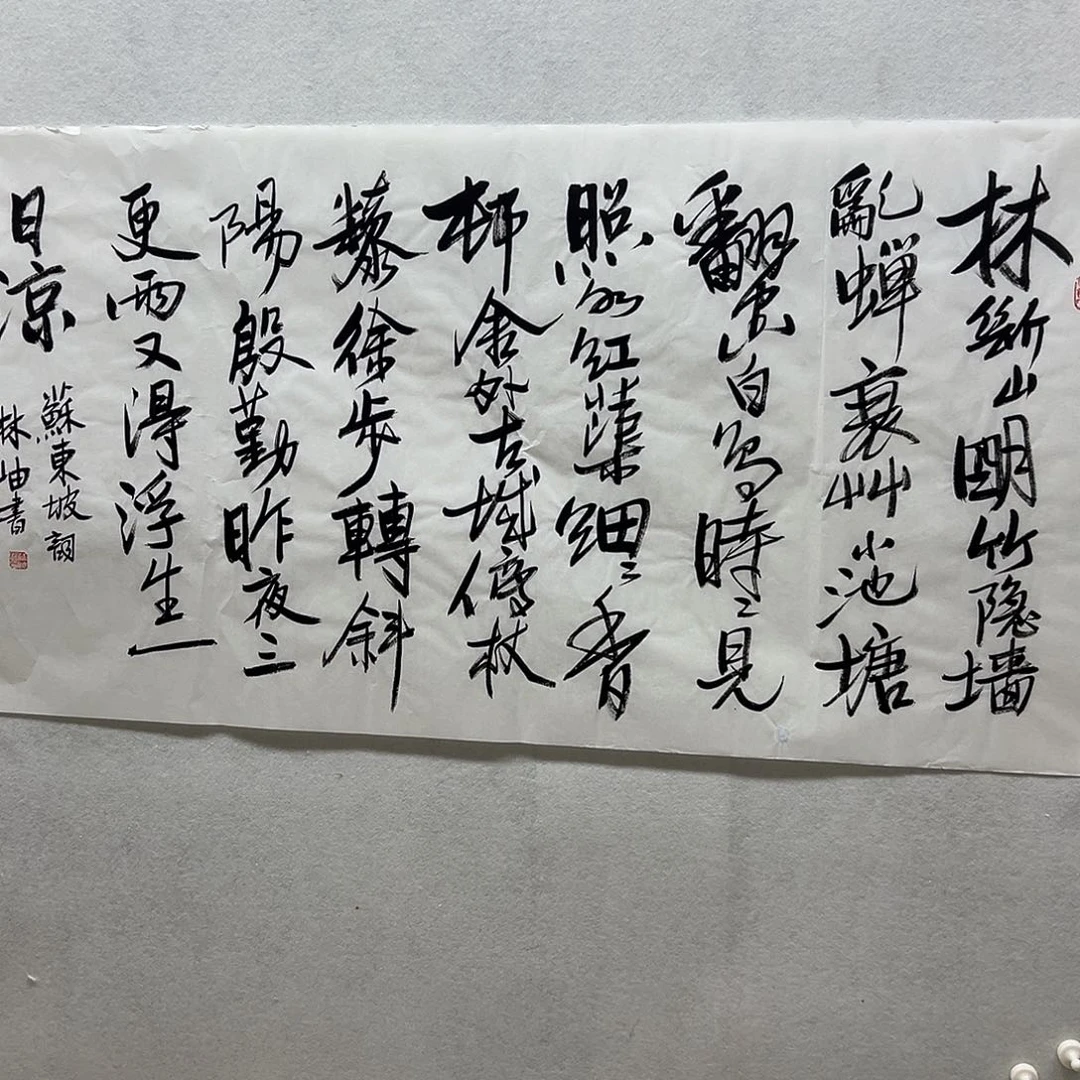 林斷山朙竹隐墙
亂蝉衰艸小池塘
翻空白鳥時〻見
照水红蕖細〻香
邨舍外古城傍杖
藜徐步轉斜
陽殷勤昨夜三
更雨又得浮生一
日凉
蘇東坡詞
林岫書